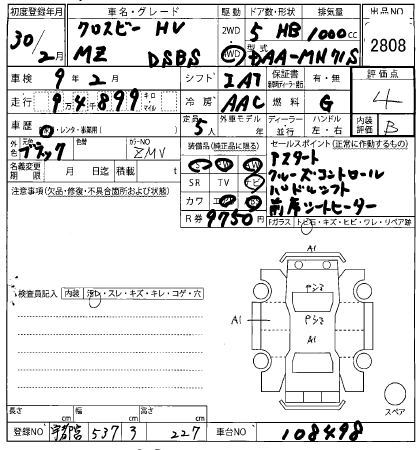 初度登録年月 車名・グレード 駆動 ドア数・形状 排気量 出品NO
30/2月 クロスビー HV MZ DSBS 2WD 4WD 5 HB 1000cc 2808
型式 DAA-MN71S
車検 9年2月 シフト IAT 保証書 有・無 評価点
走行 9万4,899 キロ マイル 冷房 AAC 燃料 G 4
車歴 レンタ・事業用( ) 定員 5人 外車モデル 年 ディーラー 並行 ハンドル 左・右 内装評価 B
外色 元色 ブラック 色替 カラーNO ZMV 装備品(純正品に限る) セールスポイント(正常に作動するもの)
名義変更期限 月 日迄 積載 t SR TV ナビ
アスタート
クルーズコントロール
パドルシフト
前席シートヒーター
注意事項(欠品・修復・不具合箇所および状態) カワ
R券 9750円 Fガラス トビ石・キズ・ヒビ・ワレ・リペア跡
A1
ヤシミ
検査員記入 内装 汚レ・スレ・キズ・キレ・コゲ・穴
A1 ヤシミ A1
A1
スペア
長さ cm 幅 cm 高さ cm
登録NO 宇都宮 537 ス 227 車台NO 108498